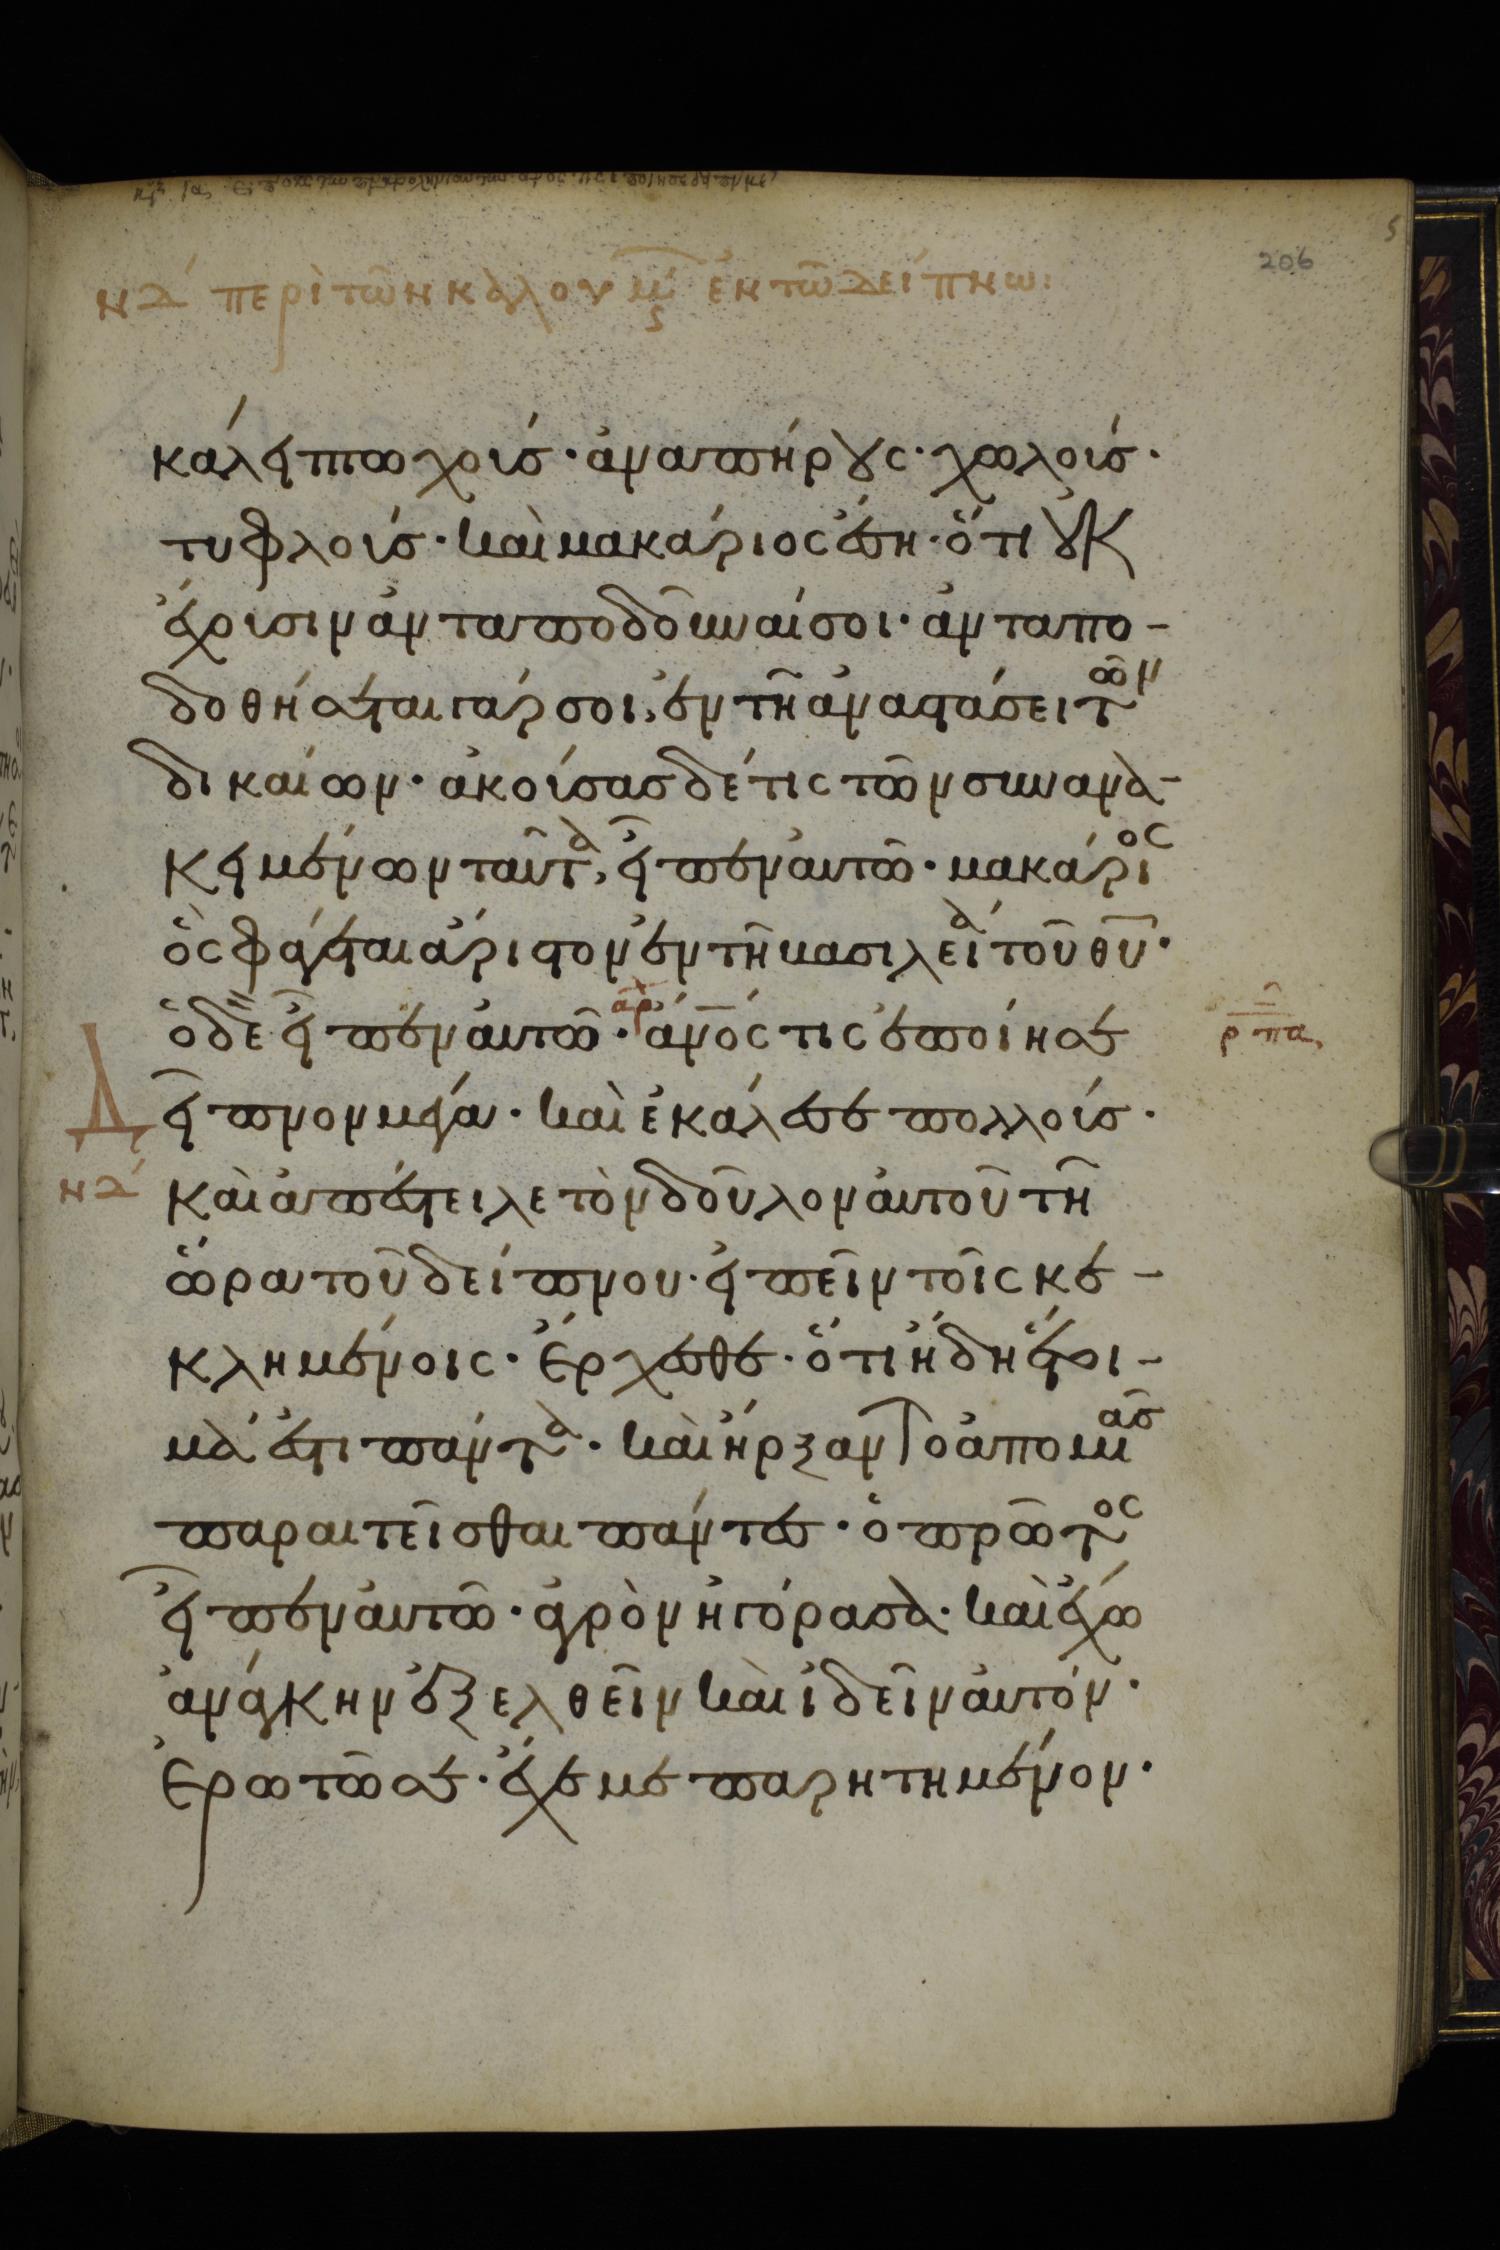 206
νδ περὶ τῶν καλουμ ἐν τῶ δείπνω:
κάλει πτωχούσ· ἀναπήρους· χωλούσ·
τυφλούσ· καὶ μακάριος ἔση· ὅτι οὐκ
ἔχουσιν ἀνταποδοῦναί σοι· ἀνταπο-
δοθήσεται γάρ σοι, ἐν τῆ ἀναστάσει τῶν
δικαίων· ἀκούσασ δέ τις τῶν συνανα-
κειμένων ταῦτα, εἶπεν αὐτῶ· μακάριος
ὃς φάγεται ἄριστον ἐν τῆ βασιλεία τοῦ θυ·
ὁ δὲ εἶπεν αὐτῶ· ανός τις ἐποίησε
ρπα
δεῖπνον μέγα· καὶ ἐκάλεσε πολλούσ·
νδ καὶ ἀπέστειλε τὸν δοῦλον αὐτοῦ τῆ
ὥρα τοῦ δείπνου· εἰπεῖν τοῖς κε-
κλημένοις· ἔρχεσθε· ὅτι ἤδη ἕτοι-
μά ἐστι πάντα· καὶ ἤρξαντο ἀπο μιᾶσ
παραιτεῖσθαι πάντεσ· ὁ πρῶτος
εἶπεν αὐτῶ· ἀγρὸν ἠγόρασα· καὶ ἔχω
ἀνάγκην ἐξελθεῖν καὶ ἰδεῖν αὐτόν·
ἐρωτῶ σε· ἔχε με παρητημένον·